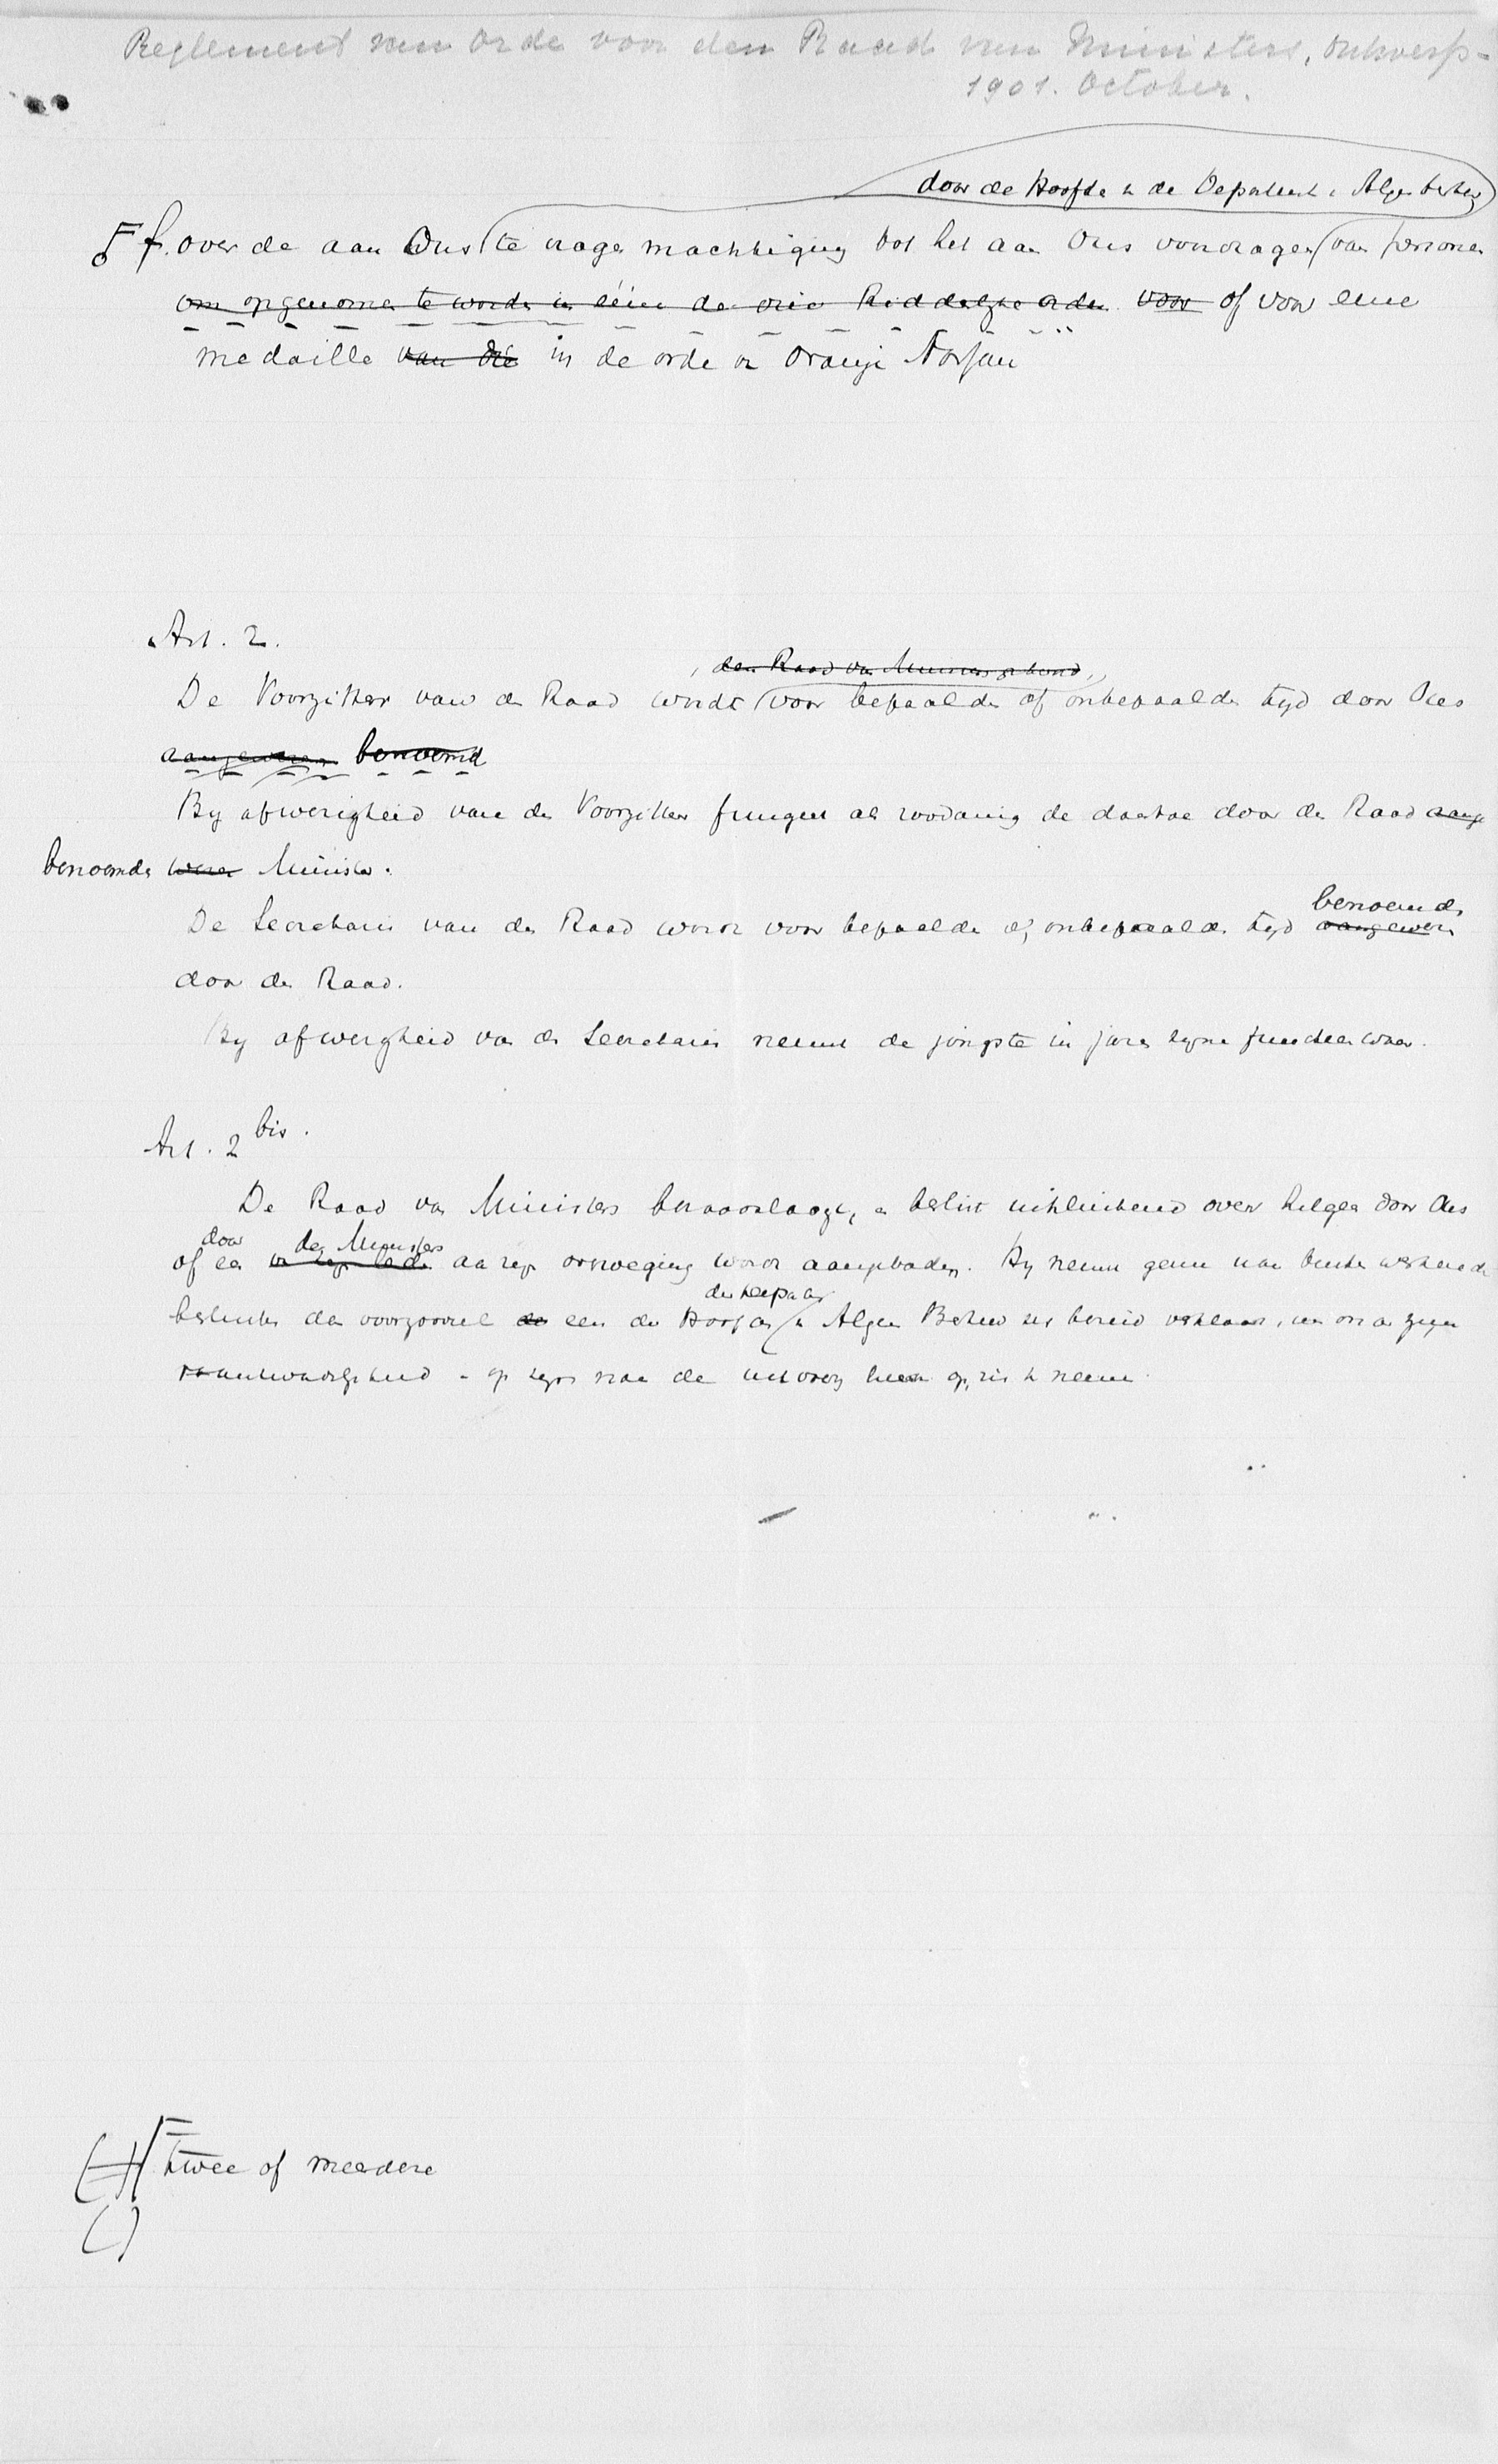 Reglement van Orde voor den Raad van Ministers, Ontwerp-
1901. October.
door de Hoofden v de Departem. v Alg. beheer
f. over de aan Ons te vragen machtiging tot het aan Ons voordragen van personen
om opgenomen te worden in één der drie Ridderlijke orden voor of voor eene
medaille van die in de orde v Oranje Nassau
Art. 2.
den Raad van Ministers gehoord,
De Voorzitter van den Raad wordt voor bepaalden of onbepaalden tijd door Ons
aangewezen benoemd
Bij afwezigheid van den Voorzitter fungeert als zoodanig de daartoe door den Raad aange
benoemde wezen Minister.
benoemd
De Secretaris van den Raad wordt voor bepaalden of onbepaalden tijd aangewezen
door den Raad.
Bij afwezigheid van den Secretaris neemt de jongste in jaren zijne functien waar.
Art. 2 bis.
De Raad van Ministers beraadslaagt, en beslist uitsluitend over hetgeen door Ons
door der Ministers
of een aan zijn overweging wordt aangeboden. Hij neemt geene naar buiten werkende
der Depart.
besluiten dan voorzooveel de een der Hoofden v Algem Beheer zich bereid verklaart, om onder zijne
verantwoordelijkheid op zich te nemen.
twee of meerdere